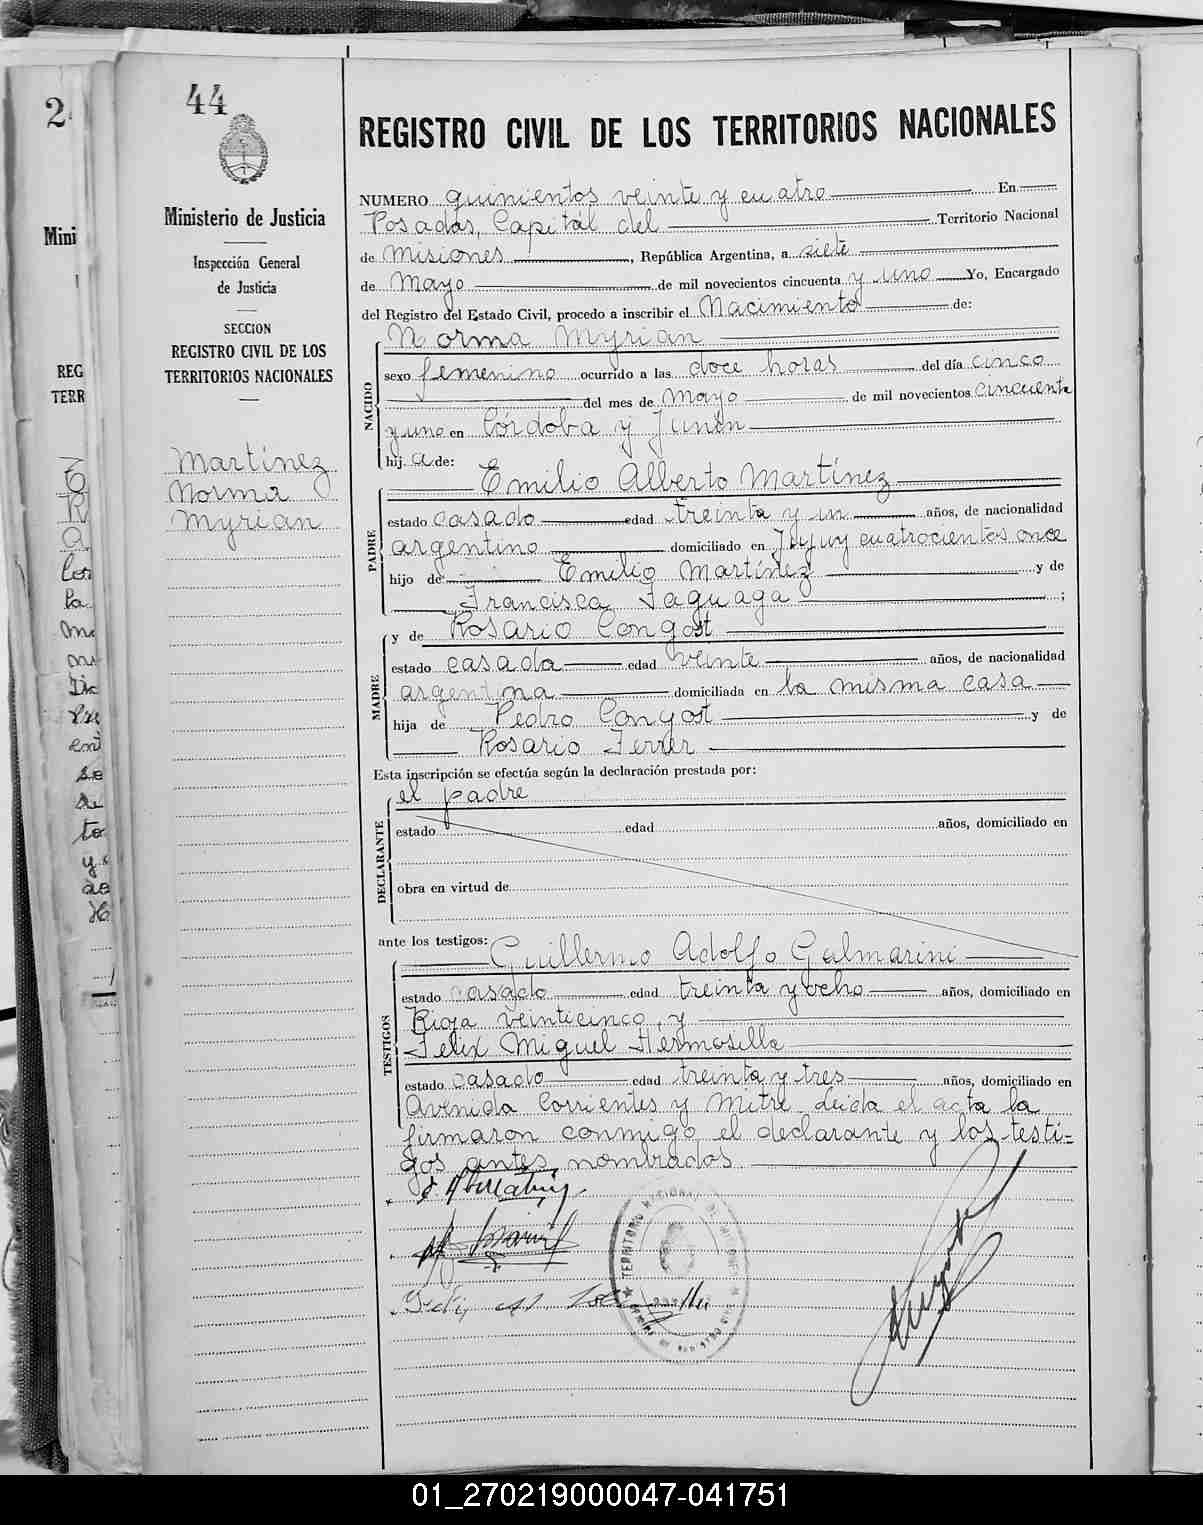 44
Ministerio de Justicia
Inspección General
de Justicia
SECCION
REGISTRO CIVIL DE LOS
TERRITORIOS NACIONALES
Martínez
Norma
Myrian
REGISTRO CIVIL DE LOS TERRITORIOS NACIONALES
NUMERO quinientos veinte y cuatro En
Posadas, Capitál del Territorio Nacional
de Misiones, República Argentina, a siete
de Mayo de mil novecientos cincuenta y uno Yo, Encargado
del Registro del Estado Civil, procedo a inscribir el Nacimiento de:
NACIDO
Norma Myrian
sexo femenino ocurrido a las doce horas del día cinco
del mes de Mayo de mil novecientos cincuenta
y uno en Córdoba y Junín
hij a de:
PADRE
Emilio Alberto Martínez
estado casado edad treinta y un años, de nacionalidad
argentino domiciliado en Jujuy cuatrocientos once
hijo de Emilio Martínez y de
Francisca Jaguaga;
MADRE
y de Rosario Congost
estado casada edad veinte años, de nacionalidad
argentina domiciliada en la misma casa
hija de Pedro Congost y de
Rosario Ferrer
Esta inscripción se efectúa según la declaración prestada por:
DECLARANTE
el padre
estado edad años, domiciliado en
obra en virtud de
ante los testigos: Guillermo Adolfo Galmarini
TESTIGOS
estado casado edad treinta y ocho años, domiciliado en
Rioja veinticinco, y
Felix Miguel Hermosilla
estado casado edad treinta y tres años, domiciliado en
Avenida Corrientes y Mitre. Leida el acta la
firmaron conmigo, el declarante y los testi=
gos antes nombrados
01_270219000047-041751